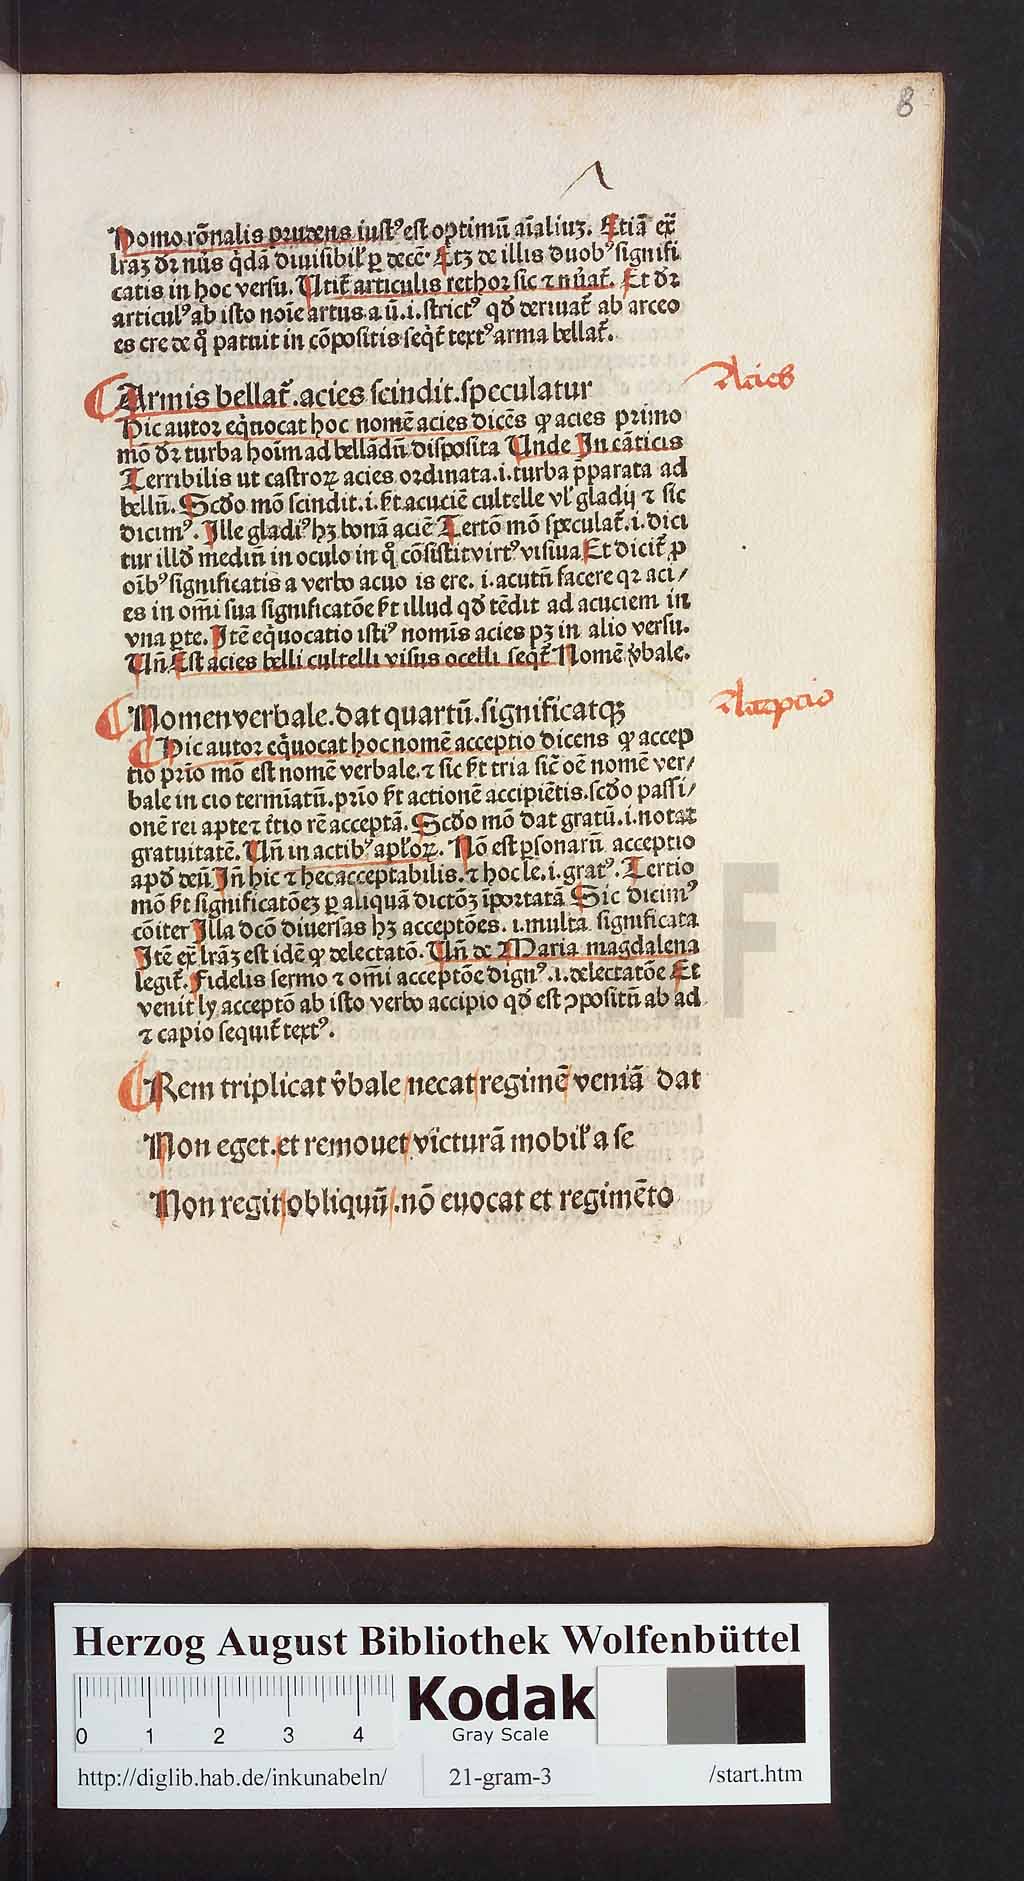 8
Homo rõnalis prudens iustꝰ est optimũ aĩaliuʒ. Etiã ex̃
lraʒ dr̃ nũs q̃dã diuisibil̕ ꝑ decẽ. Etʒ de illis duobꝰ signifi
catis in hoc versu. Utit̃ articulis rethor sic ⁊ nũat̃. Et dr̃
articulꝰ ab isto noĩe artus.a ũ.i.strictꝰ qd̕ deriuat̃ ab arceo
es cre de q̊ patuit in cõpositis seq̃t̃ textꝰ arma bellat̃.
Armis bellat̃.acies scindit.speculatur
Acies
Hic autor eq̃uocat hoc nomẽ acies dicẽs ꝙ acies primo
mõ dr̃ turba hoĩm ad bellãdũ disposita Unde In cãticis
Terribilis ut castroꝝ acies ordinata.i.turba p̃parata ad
bellũ. Scd̕o mõ scindit.i.s̃t acuciẽ cultelle vl̕ gladij ⁊ sic
dicimꝰ. Ille gladiꝰ hʒ bonã aciẽ Tertõ mõ speculat̃.i.dici
tur illd̕ mediũ in oculo in q̊ cõsistit virtꝰ visiua Et dicit̃ ꝓ
oĩbꝰ significatis a verbo acuo is ere. i.acutũ facere qꝛ aci/
es in om̃i sua significatõe s̃t illud qd̕ tẽdit ad acuciem in
vna ꝑte. Itẽ eq̃uocatio istiꝰ nomĩs acies pʒ in alio versu.
Uñ Est acies belli cultelli visus ocelli seqt̃ Nomẽ v̕bale.
Nomen verbale.dat quartũ.significatqʒ
Accepcio
Hic autor eq̃uocat hoc nomẽ acceptio dicens ꝙ accep
tio prĩo mõ est nomẽ verbale.⁊ sic s̃t tria sic̃ oẽ nomẽ ver/
bale in cio termĩatũ.prĩo s̃t actionẽ accipiẽtis.scd̕o passi/
onẽ rei apte ⁊ t̃tio rẽ acceptã. Scd̕o mõ dat gratũ.i.notat
gratuitatẽ. Uñ in actibꝰ apl̕oꝝ. Nõ est ꝑsonarũ acceptio
apd̕ deũ. Iñ hic ⁊ hec acceptabilis.⁊ hoc le.i.gratꝰ. Tertio
mõ s̃t significatõeʒ ꝑ aliquã dictõʒ ĩportatã Sic dicimꝰ
cõiter Illa dcõ diuersas hʒ acceptões. i.multa significata
Itẽ ex̃ lrãʒ est idẽ ꝙ delectatõ. Uñ de Maria magdalena
legit̃. Fidelis sermo ⁊ om̃i acceptõe dignꝰ.i.delectatõe Et
venit ly acceptõ ab isto verbo accipio qd̕ est ꝯpositũ ab ad
⁊ capio sequit̃ textꝰ.
Rem triplicat v̕bale necat regimẽ veniã dat
Non eget.et remouet victurã mobil̕ a se
Non regit obliquũ.nõ euocat et regimẽto
Herzog August Bibliothek Wolfenbüttel
0 1 2 3 4
Kodak
Gray Scale
http://diglib.hab.de/inkunabeln/ 21-gram-3 /start.htm